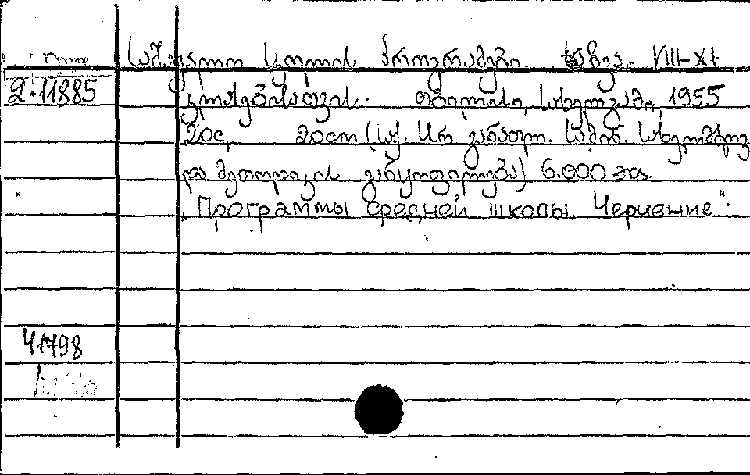 საშუალო სკოლის პროგრამები. ხაზვა. VIII-XI
2-11885
კლასებისათვის. თბილისი, სახელგამი, 1955
20с. 20см (საქ. სსრ განათლ. სამინ. სასკოლო
და მეთოდიკის განყოფილება) 6.000 ეგზ.
„Программы средней школы. Черчение".
41498